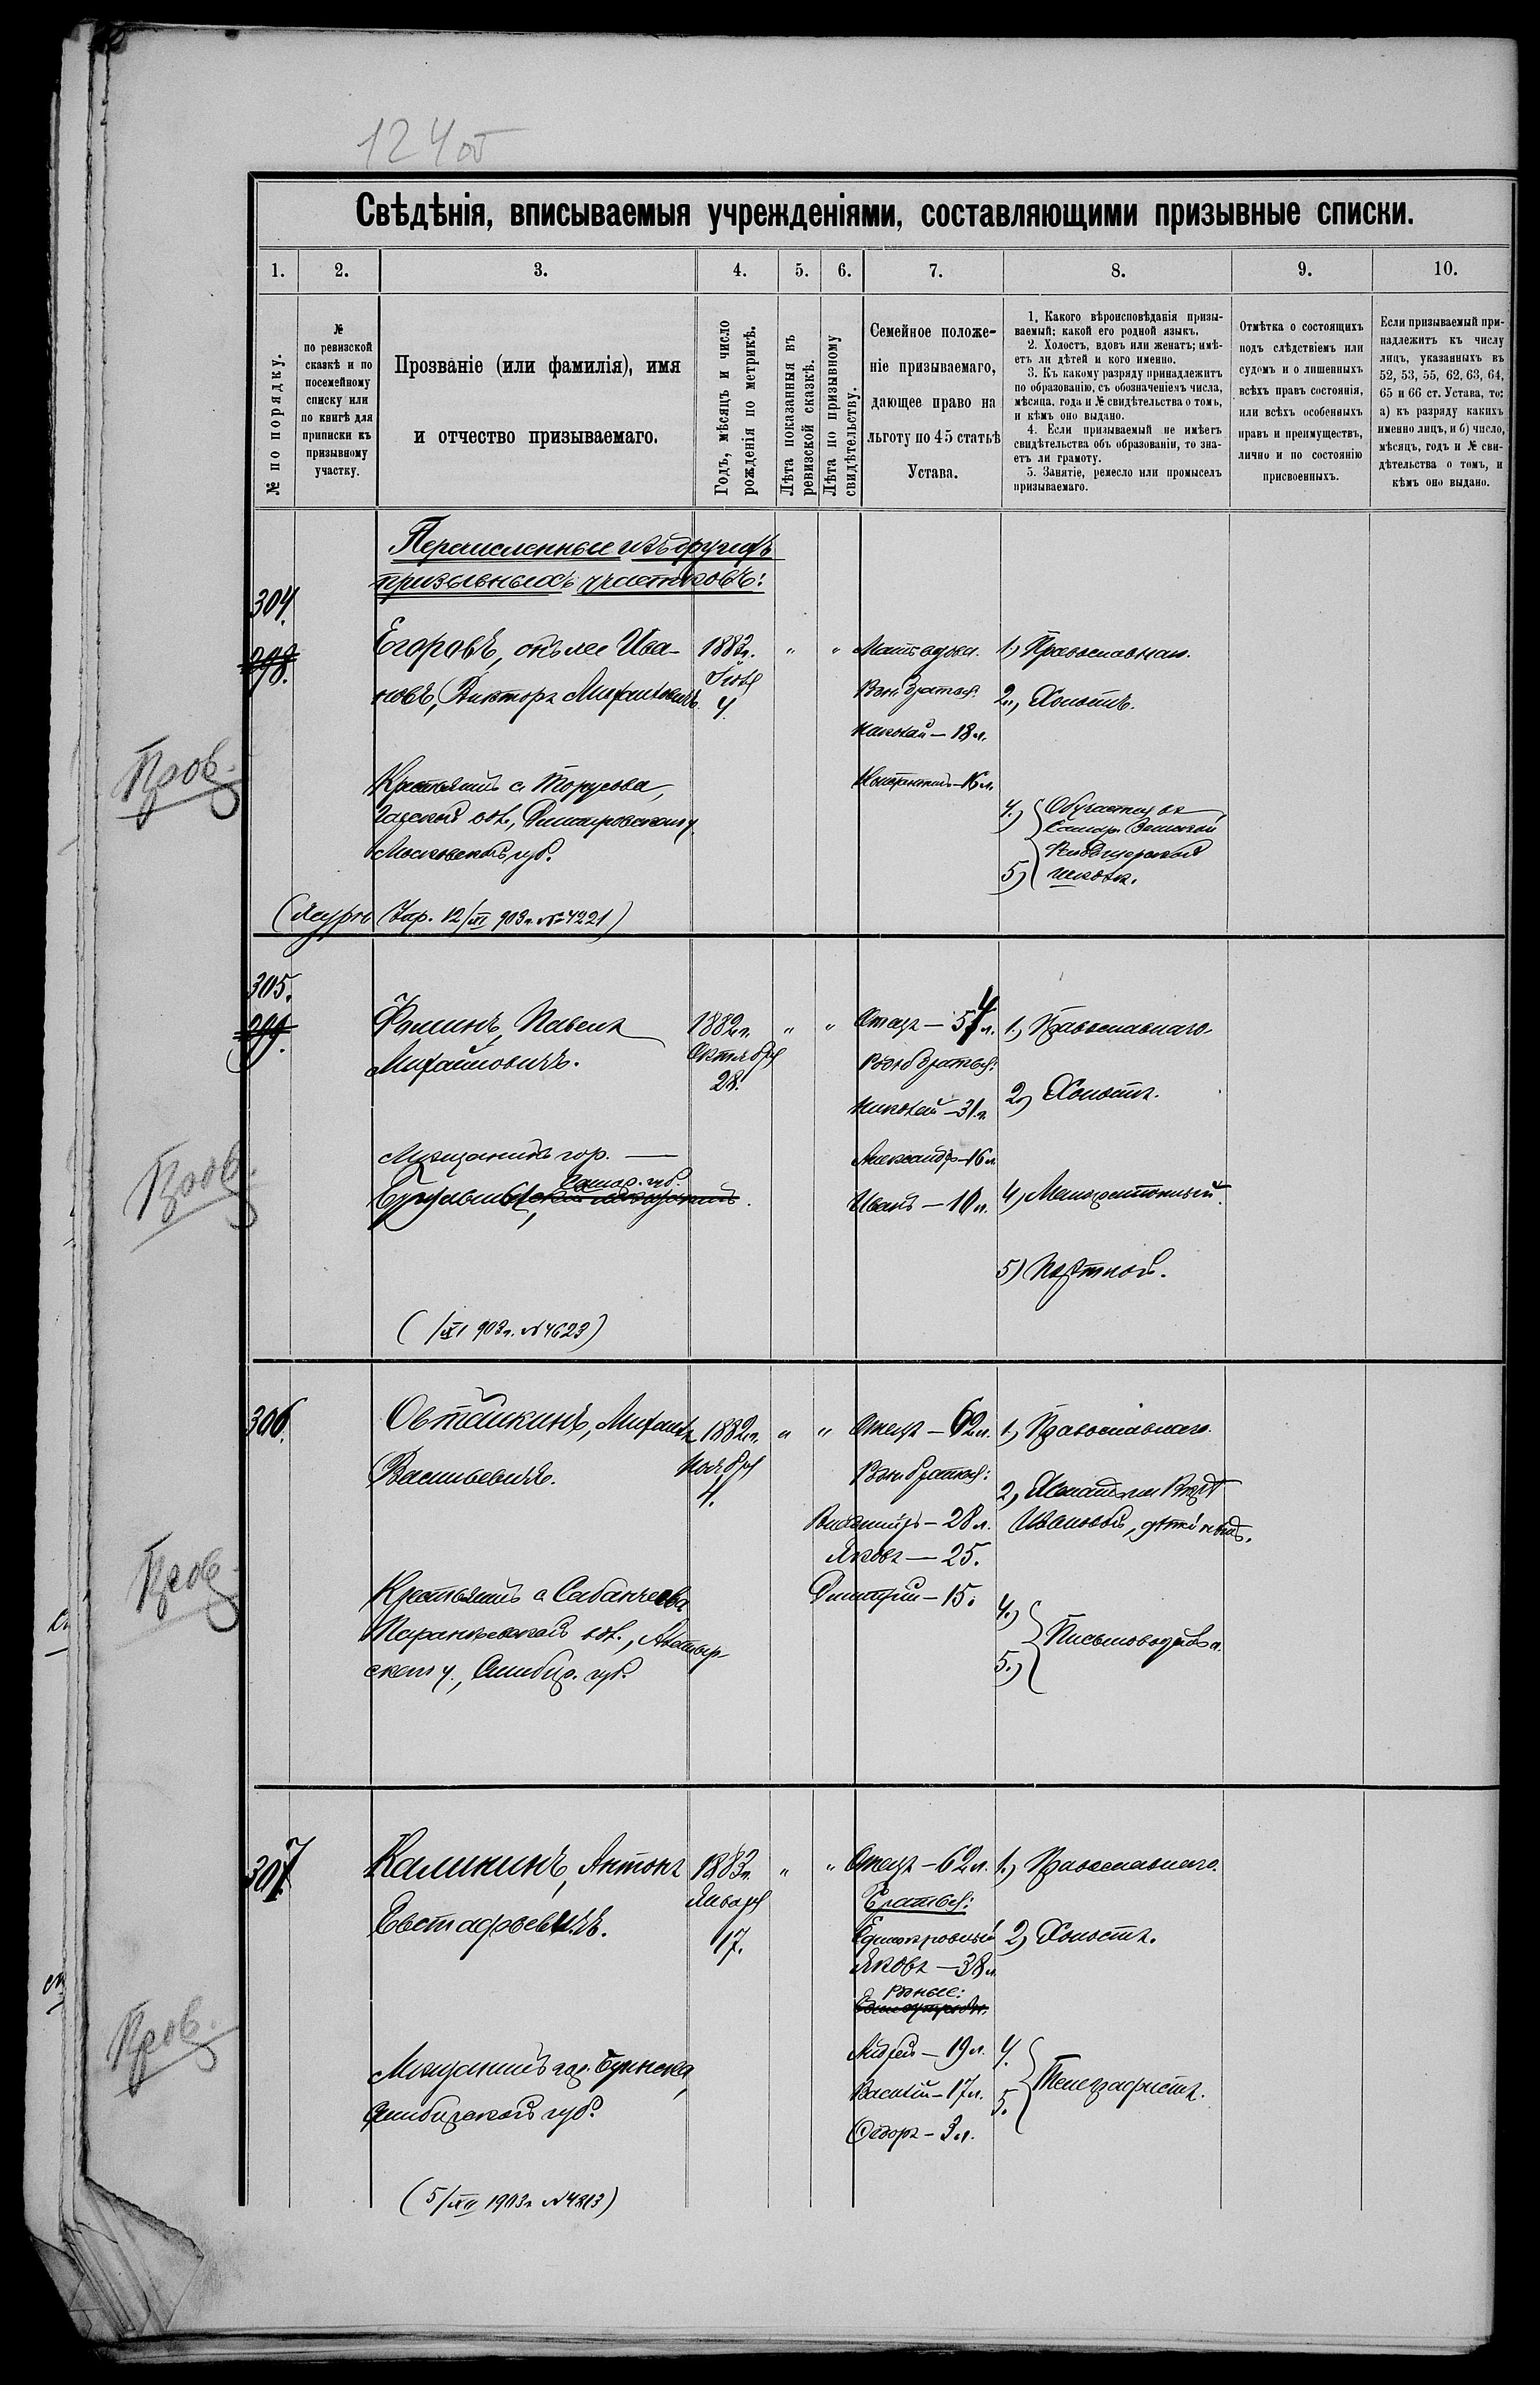 124 об
Свѣдѣнія, вписываемыя учрежденіями, составляющими призывные списки.
1. 2. 3. 4. 5. 6. 7. 8. 9. 10.
№ по порядку.
№
по ревизской
сказкѣ и по
посемейному
списку или
по книгѣ для
приписки къ
призывному
участку.
Прозваніе (или фамилія), имя
и отчество призываемаго.
Годъ, мѣсяцъ и число
рожденія по метрикѣ.
Лѣта показанныя въ
ревизской сказкѣ.
Лѣта по призывному
свидѣтельству.
Семейное положе-
ніе призываемаго,
дающее право на
льготу по 45 статьѣ
Устава.
1. Какого вѣроисповѣданія призы-
ваемый; какой его родной языкъ.
2. Холостъ, вдовъ или женатъ; имѣ-
етъ ли дѣтей и кого именно.
3. Къ какому разряду принадлежитъ
по образованію, съ обозначеніемъ числа,
мѣсяца, года и № свидѣтельства о томъ,
и кѣмъ оно выдано.
4. Если призываемый не имѣетъ
свидѣтельства объ образованіи, то зна-
етъ ли грамоту.
5. Занятіе, ремесло или промыселъ
призываемаго.
Отмѣтка о состоящихъ
подъ слѣдствіемъ или
судомъ и о лишенныхъ
всѣхъ правъ состоянія,
или всѣхъ особенныхъ
правъ и преимуществъ,
лично и по состоянію
присвоенныхъ.
Если призываемый при-
надлежитъ къ числу
лицъ, указанныхъ въ
52, 53, 55, 62, 63, 64,
65 и 66 ст. Устава, то:
а) къ разряду какихъ
именно лицъ, и б) число,
мѣсяцъ, годъ и № сви-
дѣтельства о томъ, и
кѣмъ оно выдано.
Перечисленные изъ другихъ
призывныхъ участковъ:
304.
298.
Егоровъ, онъ же Ива-
новъ, Викторъ Михаиловичъ.
1882 г.
4.
1) Православнаго.
Родн. братья:
2., Холостъ.
Николай — 18 л.
Пров.
Крестьянинъ с.
Константинъ — 16 л.
вол., Дмитровскаго у.
Московской губ.
4.)
5)
12/XI 903 г. № 4221)
305.
299.
Фоминъ, Павелъ
Михайловичъ.
1882 г.
Октября
28.
" "
Отецъ — 54 л.
Родн. братья:
Николай — 31 л.
Александръ — 16 л.
Иванъ — 10 л.
1.) Православнаго.
2.) Холостъ.
4) Малограмотный.
5) Портной.
Пров.
Мѣщанинъ гор. —
Самар. губ.
(/XI 903 г. № 4623)
306.
Овтайкинъ, Михаилъ
Васильевичъ.
1882 г.
Ноября
4.
" "
Отецъ — 62 л.
Родн. братья:
Владиміръ — 28 л.
Яковъ — 25.
Дмитрій — 15.
1.) Православнаго.
Ивановой,
4.)
5.)
Письмоводитель.
Пров.
Крестьянинъ с. Сабанчеева
вол., Алатыр-
скаго у., Симбир. губ.
307.
Калининъ, Антонъ
Евстафьевичъ.
1882 г.
Января
17.
" "
Отецъ — 62 л.
Братья:
Единокровный
Яковъ — 38 л.
родные:
Андрей — 19 л.
Василій — 17 л.
Ѳедоръ — 3 л.
1.) Православнаго.
2.) Холостъ.
4.
5.
Телеграфистъ.
Пров.
Мѣщанинъ гор. Буинска,
Симбирской губ.
(5/XII 1903 г. № 4813)